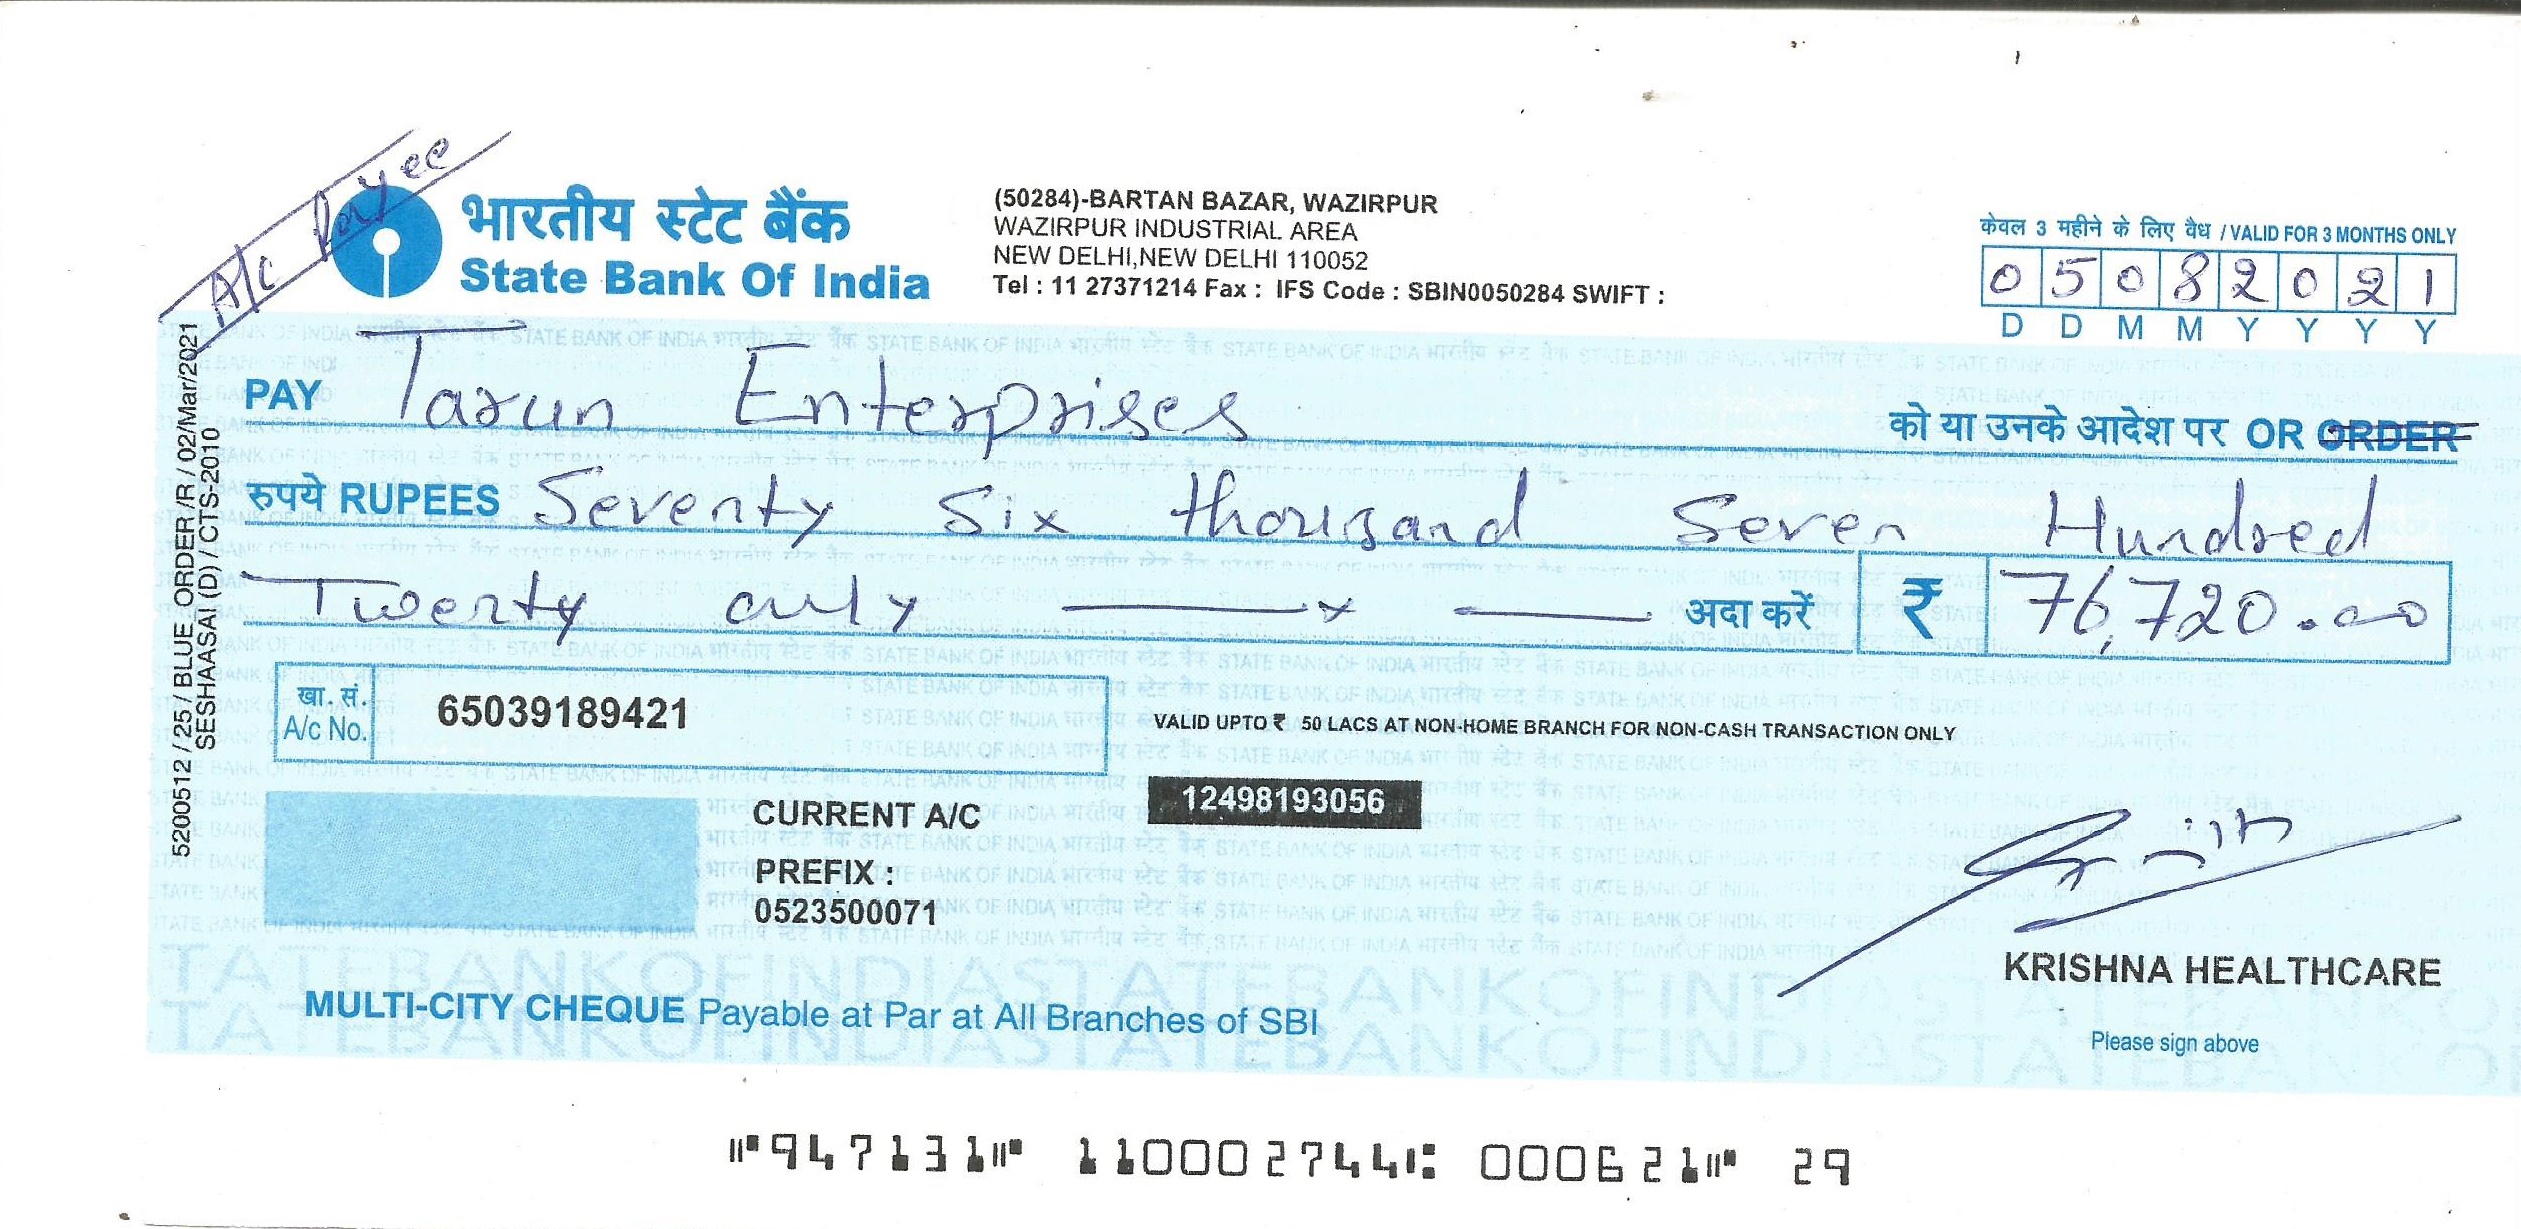 A/c Payee
भारतीय स्टेट बैंक
State Bank Of India
(50284)-BARTAN BAZAR, WAZIRPUR
WAZIRPUR INDUSTRIAL AREA
NEW DELHI,NEW DELHI 110052
Tel : 11 27371214 Fax : IFS Code : SBIN0050284 SWIFT :
केवल 3 महीने के लिए वैध / VALID FOR 3 MONTHS ONLY
0 5 0 8 2 0 2 1
D D M M Y Y Y Y
PAY Tarun Enterprises
को या उनके आदेश पर OR ORDER
रुपये RUPEES Seventy Six thousand Seven Hundred
Twenty only अदा करें ₹ 76,720.00
खा. सं.
A/c No. 65039189421
VALID UPTO ₹ 50 LACS AT NON-HOME BRANCH FOR NON-CASH TRANSACTION ONLY
12498193056
CURRENT A/C
PREFIX :
0523500071
KRISHNA HEALTHCARE
Please sign above
MULTI-CITY CHEQUE Payable at Par at All Branches of SBI
5200512 / 25 / BLUE_ORDER /R / 02/Mar/2021
SESHAASAI (D) / CTS-2010
⑈947131⑈ 110002744⑆ 000621⑈ 29